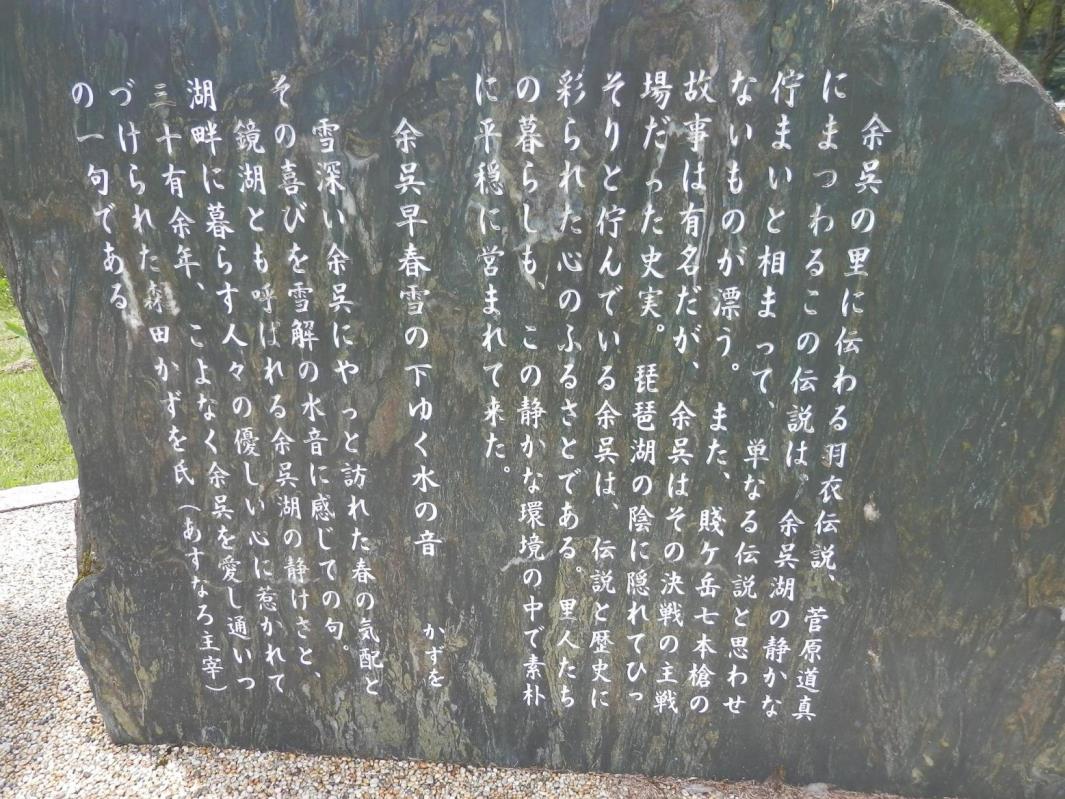 余呉の里に伝わる羽衣伝説、菅原道真
にまつわるこの伝説は、余呉湖の静かな
佇まいと相まって、単なる伝説と思わせ
ないものが漂う。また、賤ケ岳七本槍の
故事は有名だが、余呉はその決戦の主戦
場だった史実。琵琶湖の陰に隠れてひっ
そりと佇んでいる余呉は、伝説と歴史に
彩られた心のふるさとである。里人たち
の暮らしも、この静かな環境の中で素朴
に平穏に営まれて来た。
余呉早春雪の下ゆく水の音 かずを
雪深い余呉にやっと訪れた春の気配と
その喜びを雪解の水音に感じての句。
鏡湖とも呼ばれる余呉湖の静けさと、
湖畔に暮らす人々の優しい心に惹かれて
三十有余年、こよなく余呉を愛し通いつ
づけられた森田かずを氏(あすなろ主宰)
の一句である